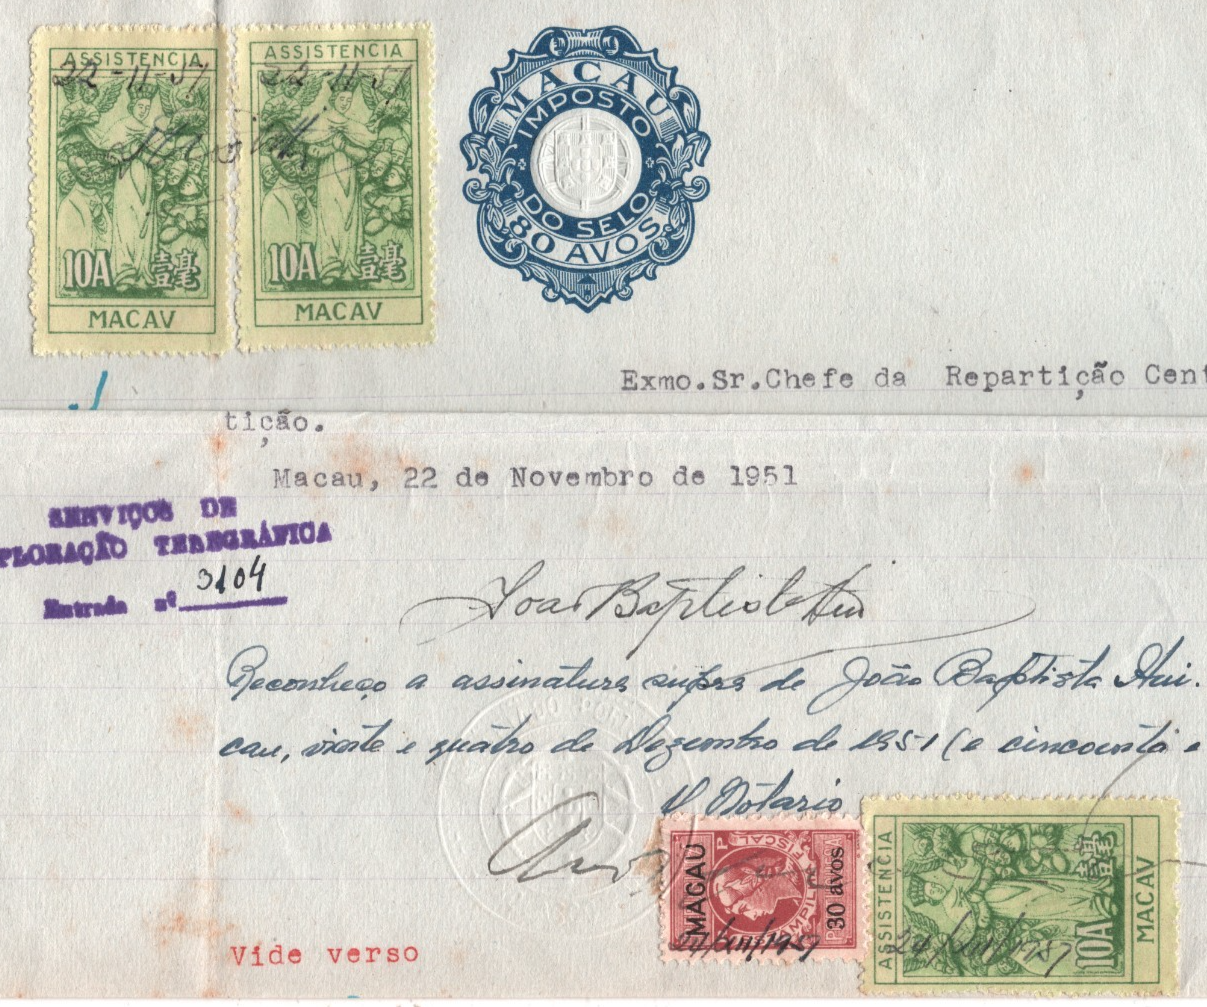 ASSISTENCIA
22-11-51
10A 壹毫
MACAV
ASSISTENCIA
22-11-51
10A 壹毫
MACAV
MACAU
IMPOSTO
DO SELO
80 AVOS
Exmo.Sr.Chefe da Repartição Cent
tição.
Macau, 22 de Novembro de 1951
SERVIÇOS DE
PLORAÇÃO TELEGRÁFICA
Entrada nº 3104
João Baptista Hui
Reconheço a assinatura supra de João Baptista Hui.
cau, vinte e quatro de Dezembro de 1951 (e cincoenta e
O Notario
MACAU
30 avos
FISCAL
24/XII/1951
ASSISTENCIA
24/XII/1951
10A 壹毫
MACAV
Vide verso